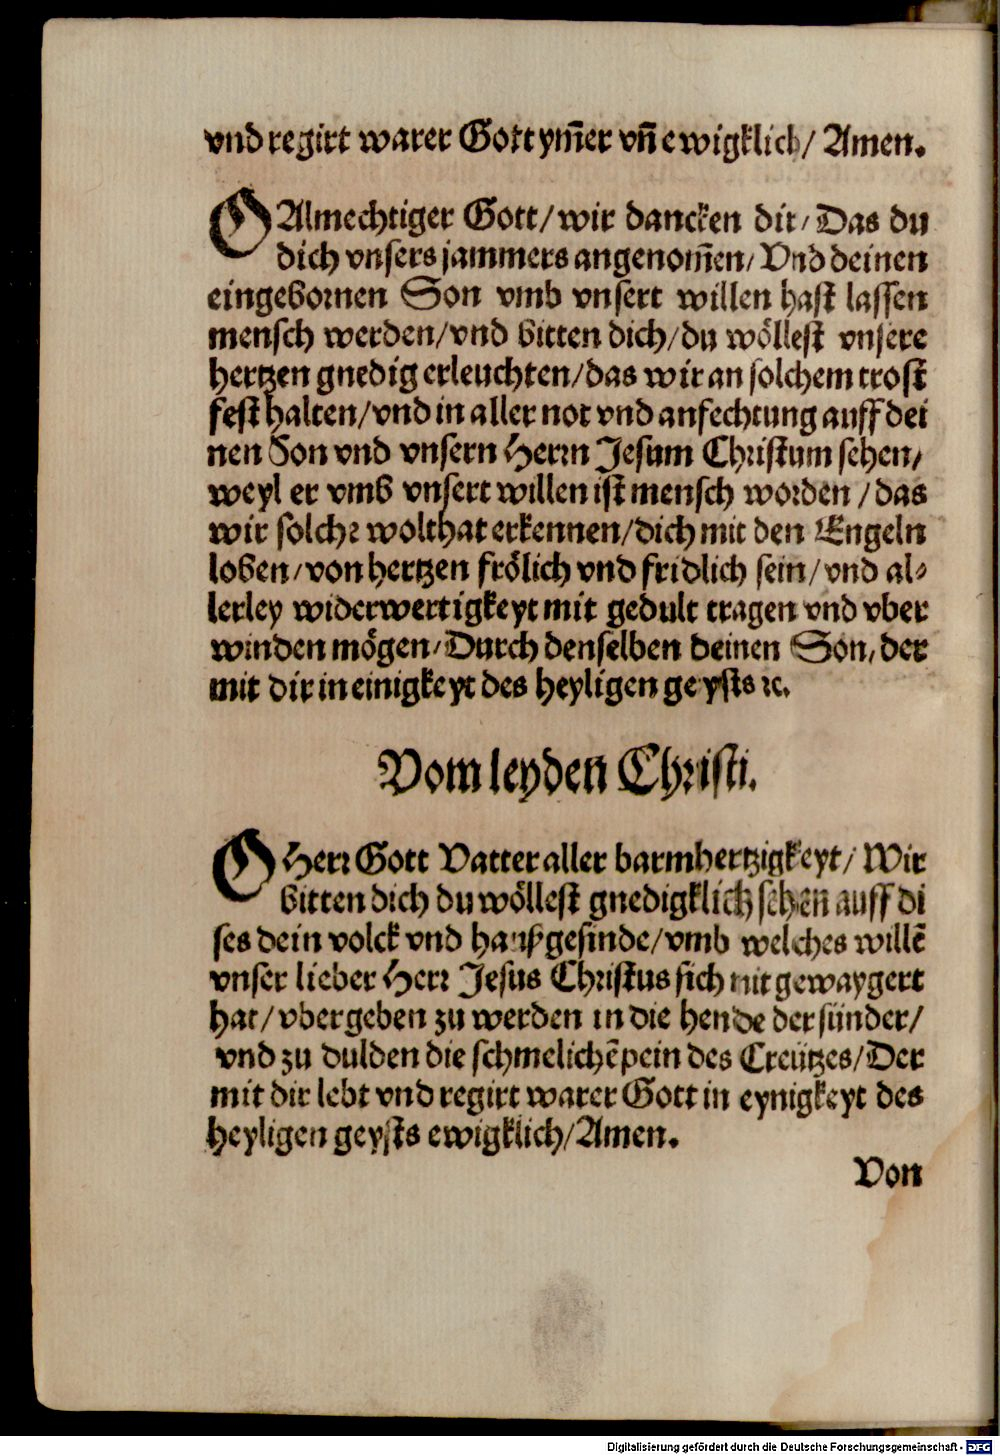 vnd regirt warer Gott ym̃er vñ ewigklich/ Amen.
O Almechtiger Gott/ wir dancken dir/ Das du
dich vnsers jammers angenom̃en/ Vnd deinen
eingebornen Son vmb vnsert willen hast lassen
mensch werden/ vnd bitten dich/ du wöllest vnsere
hertzen gnedig erleuchten/ das wir an solchem trost
fest halten/ vnd in aller not vnd anfechtung auff dei
nen Son vnd vnsern Herrn Jesum Christum sehen/
weyl er vmb vnsert willen ist mensch worden / das
wir solche wolthat erkennen/ dich mit den Engeln
loben/ von hertzen frölich vnd fridlich sein/ vnd al⸗
lerley widerwertigkeyt mit gedult tragen vnd vber
winden mögen/ Durch denselben deinen Son/ der
mit dir in einigkeyt des heyligen geysts ꝛc.
Vom leyden Christi.
O Herr Gott Vatter aller barmhertzigkeyt/ Wir
bitten dich du wöllest gnedigklich sehen auff di
ses dein volck vnd haußgesinde/ vmb welches willẽ
vnser lieber Herr Jesus Christus sich nit gewaygert
hat/ vbergeben zu werden in die hende der sünder/
vnd zu dulden die schmelichẽ pein des Creützes/ Der
mit dir lebt vnd regirt warer Gott in eynigkeyt des
heyligen geysts ewigklich/ Amen.
Von
Digitalisierung gefördert durch die Deutsche Forschungsgemeinschaft - DFG